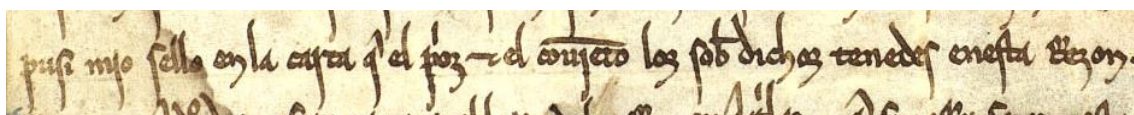 pusi mjo sello en la carta q̃ el p̃or ⁊ el cõujẽto los sob̃ dichos tenedes en esta Razon.